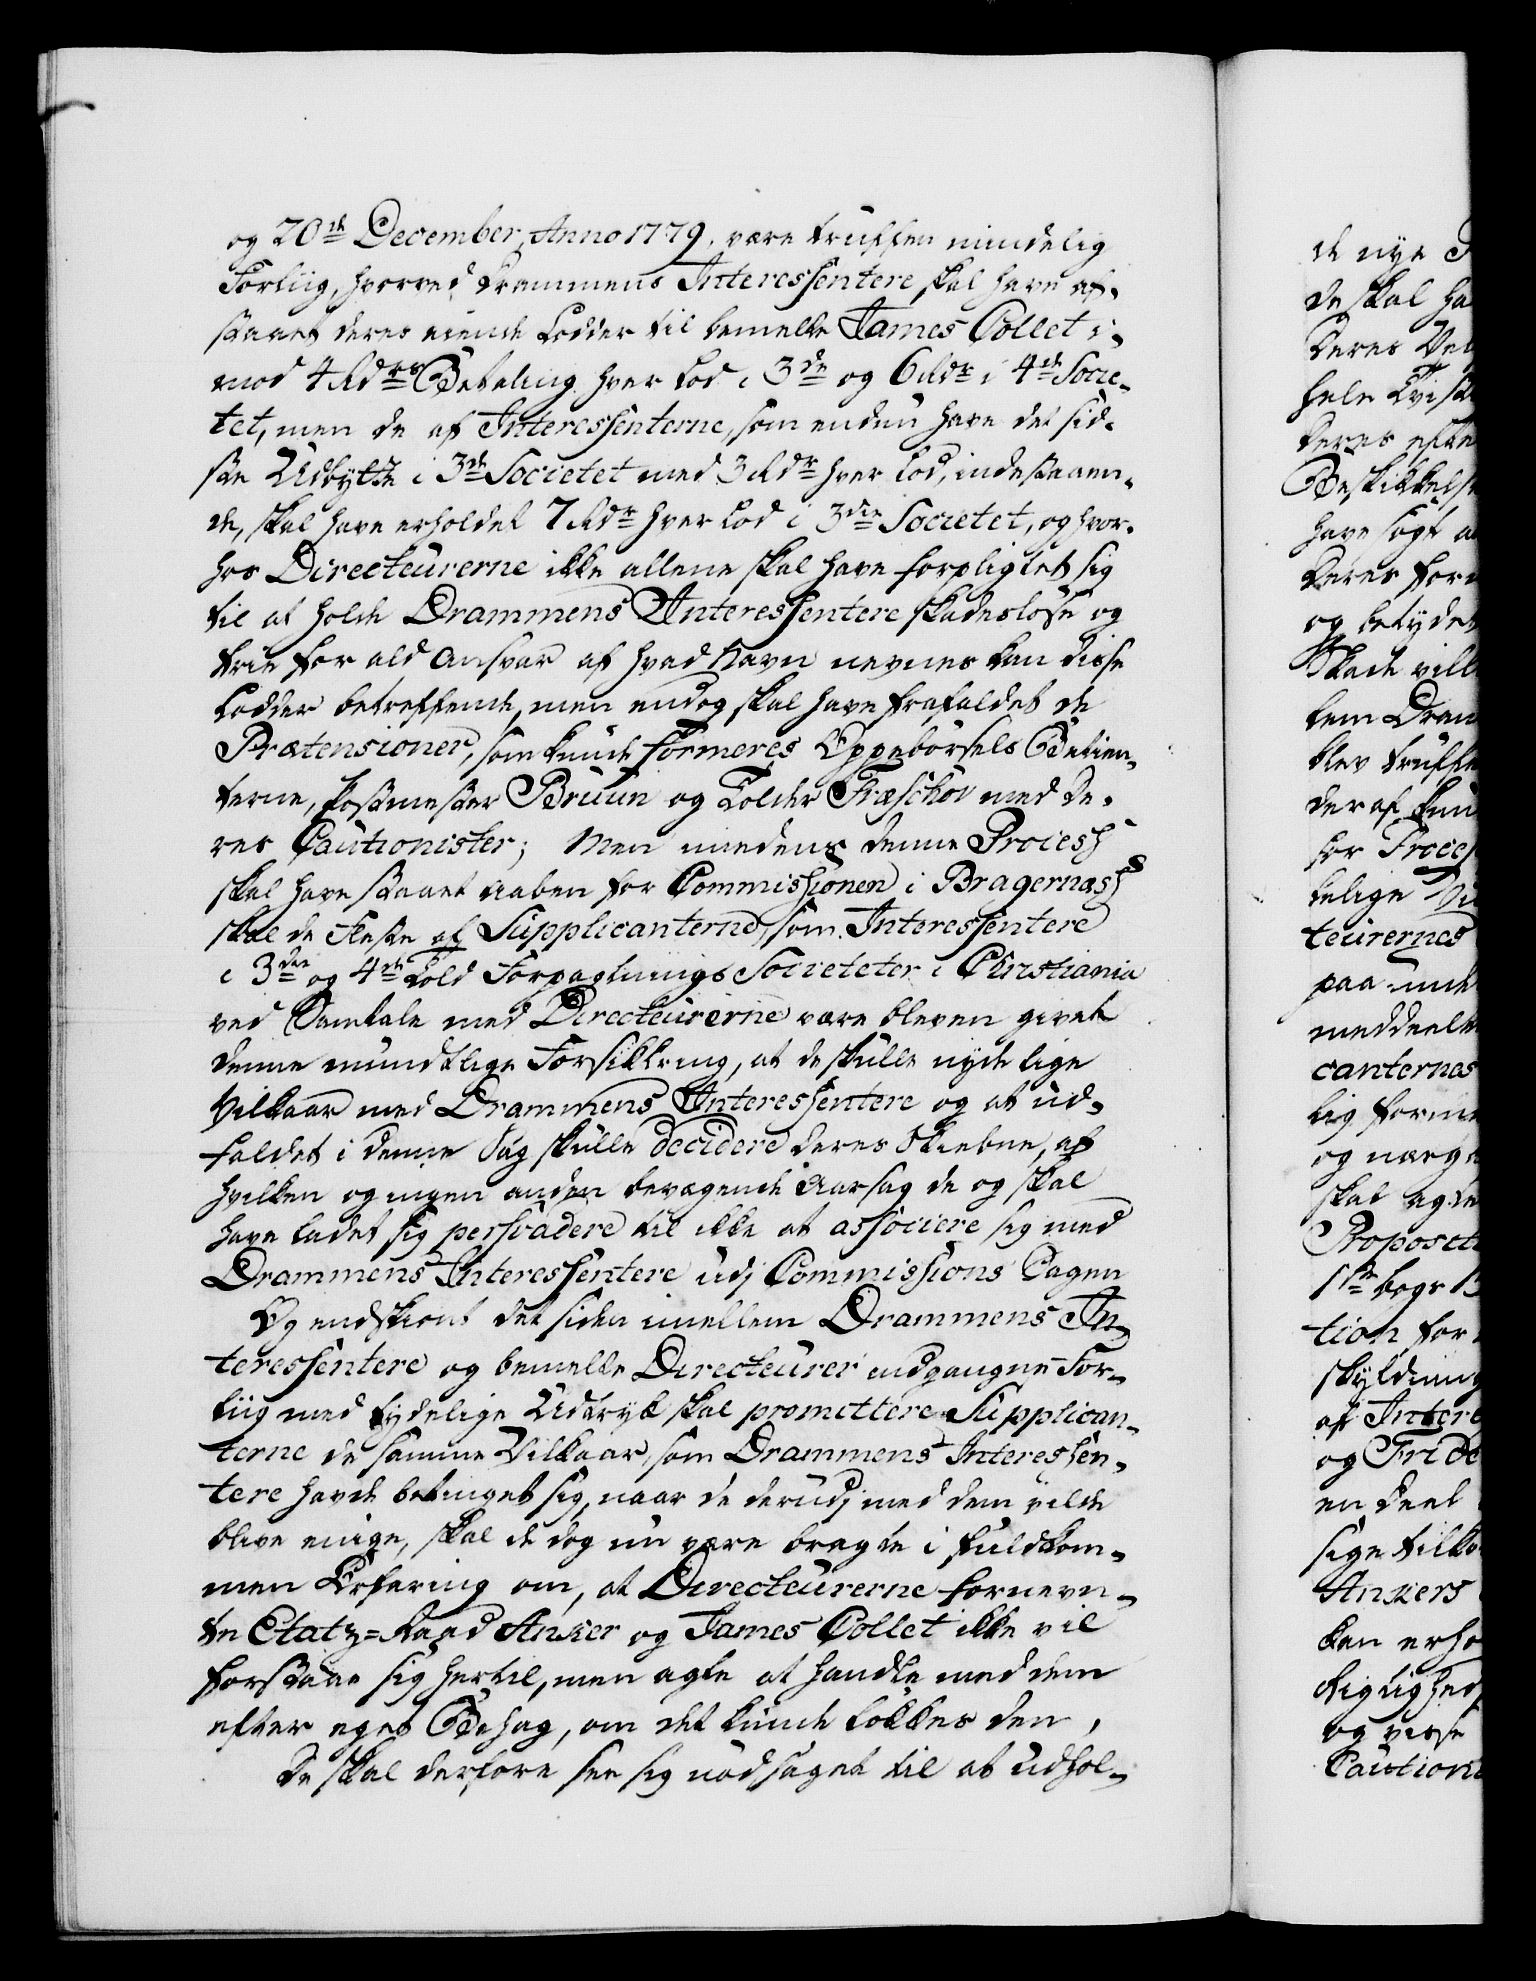 og 20de December, Anno 1779, være truffen mindelig
Forliig, hvorved Drammens Interessentere skal have af-
staaet deres eiende Lodder til bemelte James Collet i-
mod 4 Rdrs Betaling hver Lod i 3die og 6 Rdr i 4de Socie-
tet, men de af Interessenterne, som endnu have det sid-
ste Udbytte i 3die Societet med 3 Rdr hver Lod, indestaaen-
de, skal have erholdet 7 Rdr hver Lod i 3die Societet, og hvor-
hos Directeurerne ikke allene skal have forpligtet sig
til at holde Drammens Interessentere skadesløse og
frie for ald Ansvar af hvad Navn nevnes kan disse
Lodder betreffende, men endog skal have frafaldet de
Prætensioner, som kunde formeres Oppebørsels Betien-
terne, Postmester Bruun og Tolder Fræschov med de-
res Cautionister; Men medens denne Process
skal have staaet aaben for Commissionen i Bragernæss
skal de fleste af Supplicanterne, som Interessentere
i 3die og 4de Told Forpagtnings Societeter i Christiania
ved Samtale med Directeurerne være bleven givet
denne mundtlige Forsikkring, at de skulle nyde lige
Vilkaar med Drammens Interessentere og at ud-
faldet i denne Sag skulle decidere deres Skiebne, af
hvilken og ingen anden bevægende Aarsag de og skal
have ladet sig persvadere til ikke at associere sig med
Drammens Interessentere udj Commissions Sagen
Og endskiønt det siden imellem Drammens In-
teressentere og bemelte Directeurer indgangne For-
liig med tydelige Udtryk skal promittere Supplican-
terne de samme Vilkaar, som Drammens Interessen-
tere havde betinget sig, naar de derudj med dem vilde
blive enige, skal de dog nu være bragte i fuldkom-
men Erfaring om, at Directeurerne fornevn-
te Etatz=Raad Anker og James Collet ikke vil
forstaae sig hertil, men agte at handle med dem
efter eget Behag, om det kunde lokkes den,
De skal derfore see sig nødsaget til at udhol-
de nye
de skal ha
deres
hele
deres efte
have søgt
deres for
og betydel
Skade vill
lem Dram
blev truffe
deraf kun
for Proces
telige
teurernes
paa
meddeelte
canternes
lig
og
skal agte
Propos
tion for
skyldning
af Intere
og Fride
en deel
sige
Ankers
kan erho
og visse
Caution